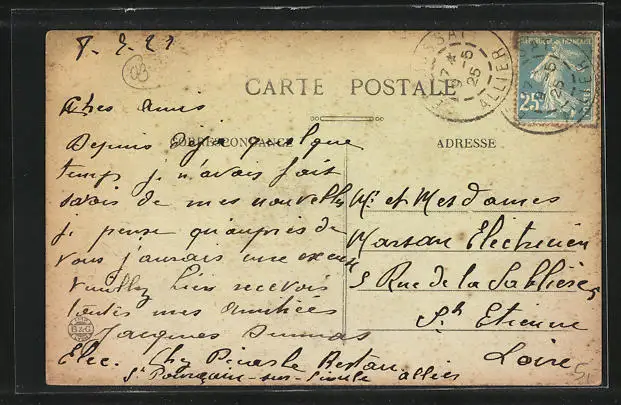 CARTE POSTALE
CORRESPONDANCE
ADRESSE
RÉPUBLIQUE FRANÇAISE
25
17 *
5 - 5
25
ALLIER
Chers amis
Depuis déjà quelque
temps je n'avais fait
savoir de mes nouvelles
je pense qu'auprès de
vous j'aurais une excuse
veuillez bien recevoir
toutes mes amitiées
Jacques Dumas
Elec. Chez Restau
St Pourçain-sur-Sioule allier
Mr et Mesdames
Marsan Electricien
5 Rue de la Sablière
St Etienne
Loire
B&G